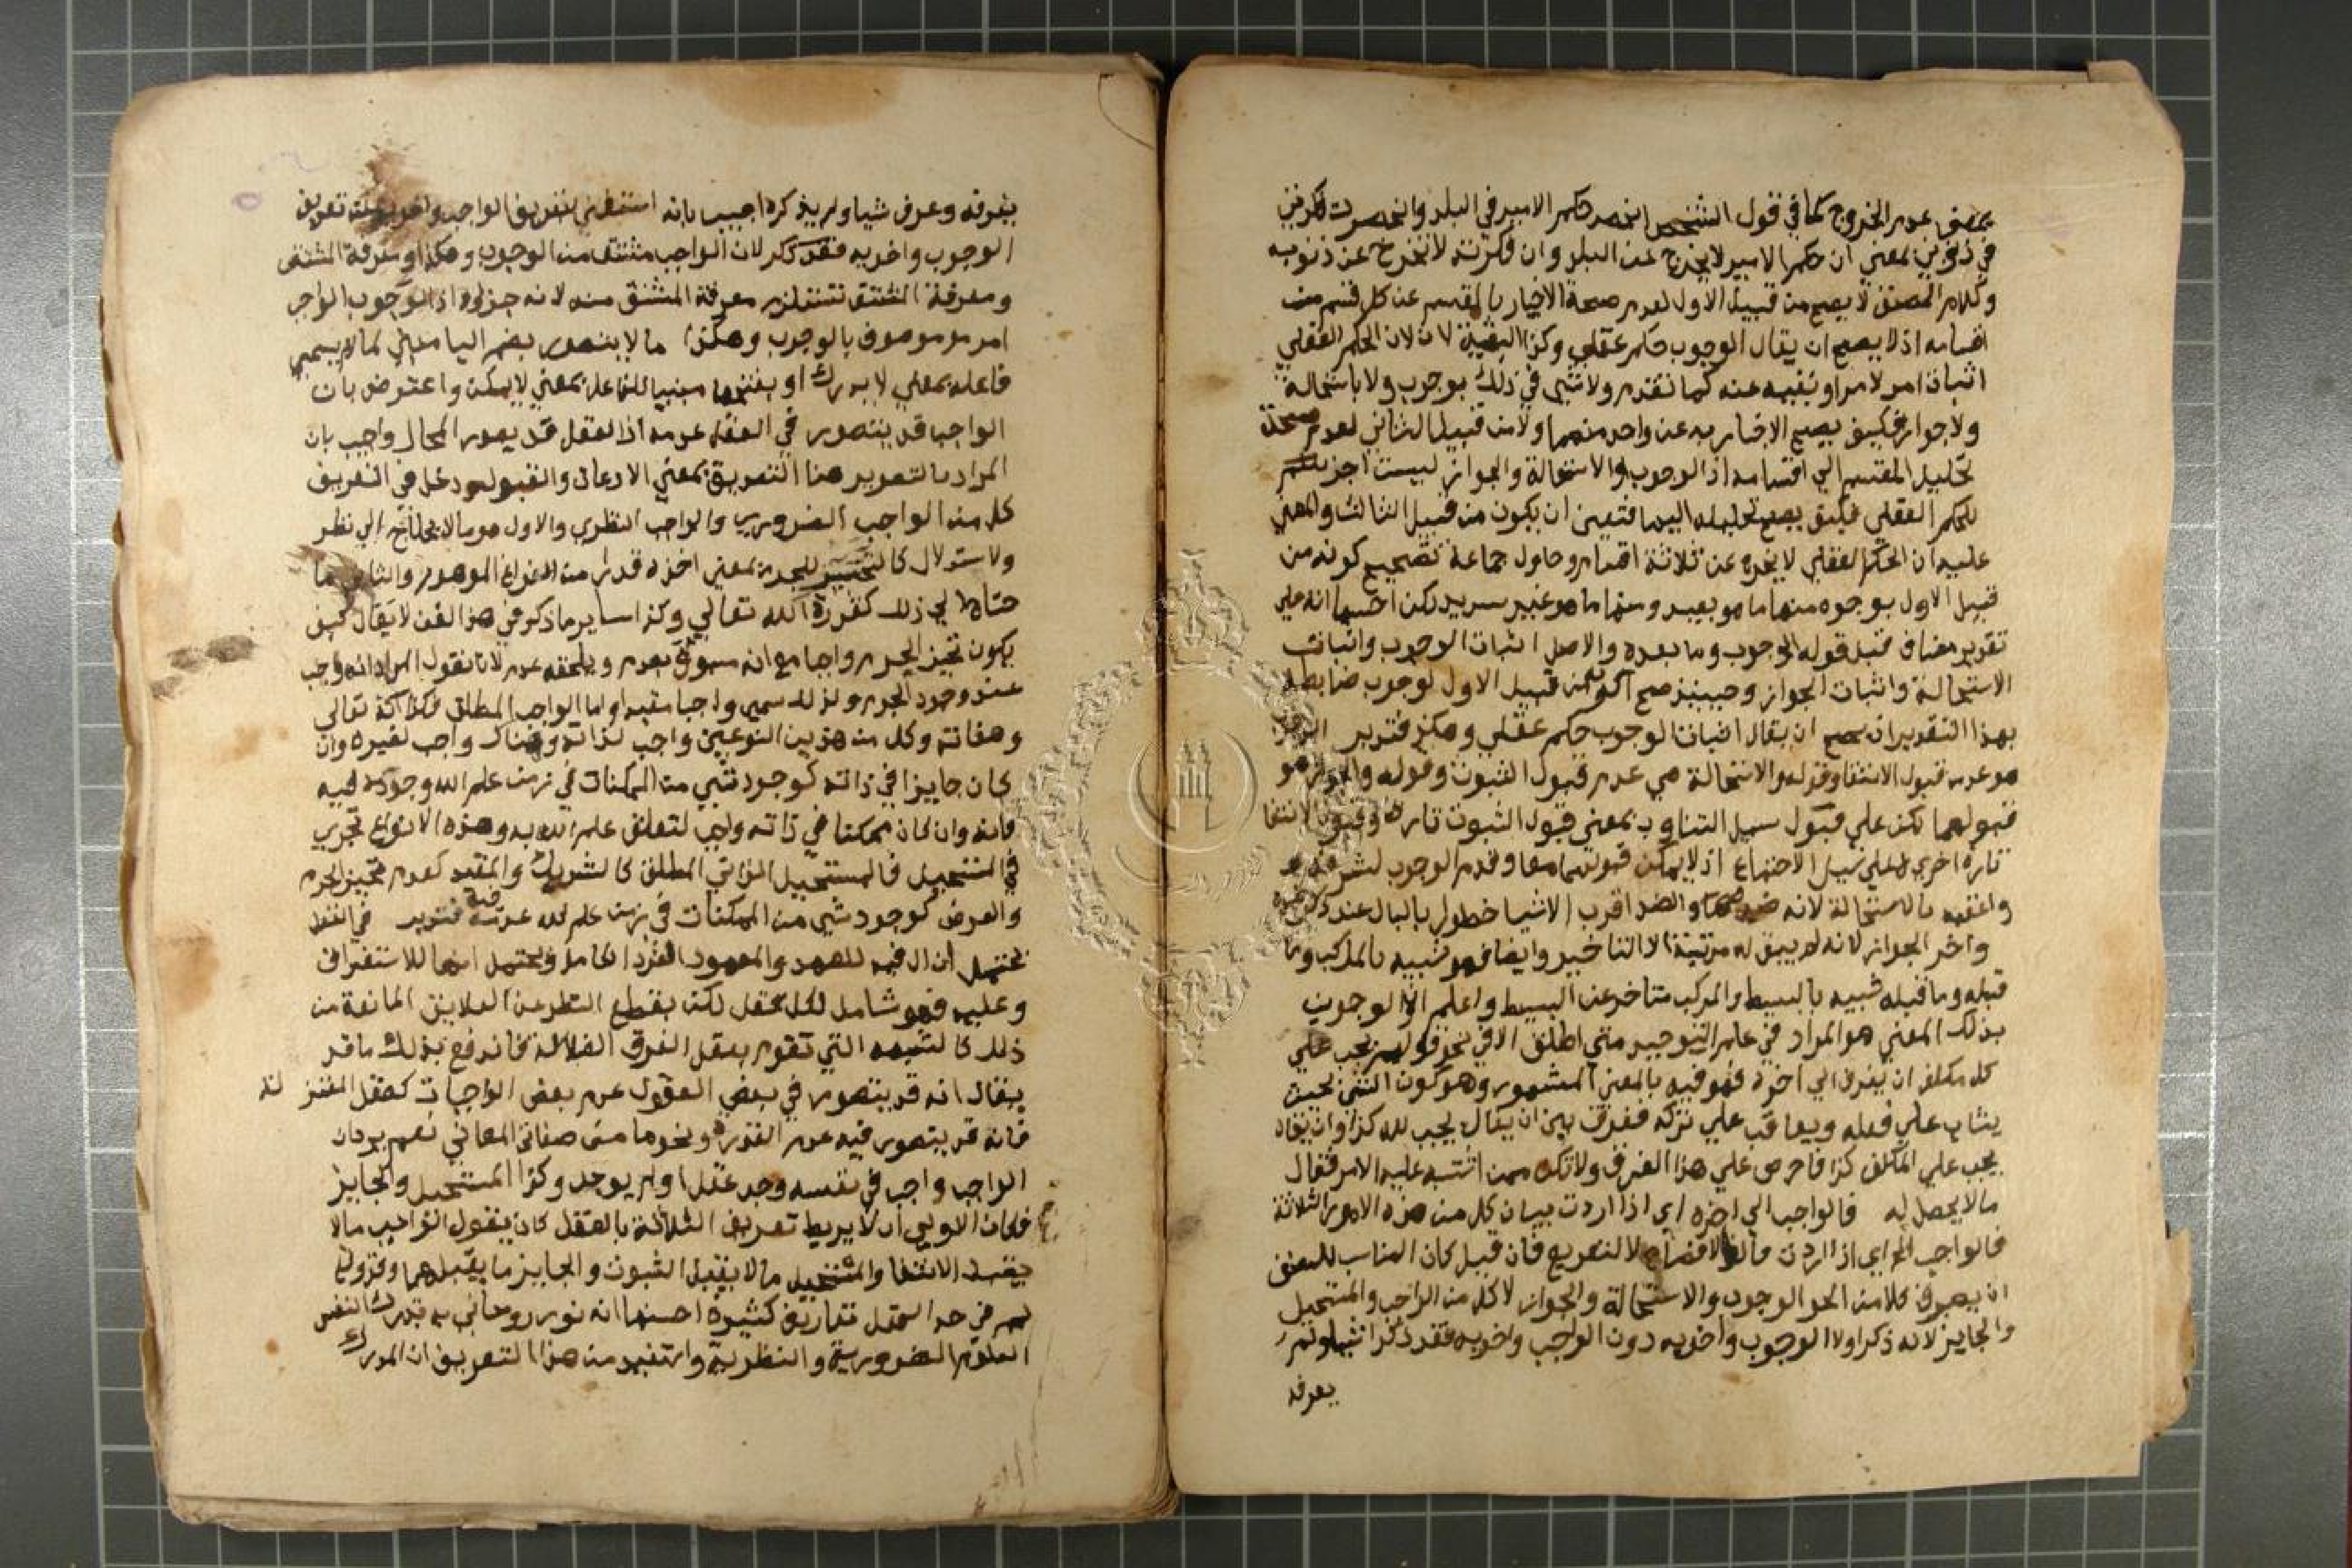 بمعنى عدم الخروج كما في قول الشخص انحصر حكم الامير في البلد وانحصرت فكرتي
في ذنوبي بمعني ان حكم الامير لا يخرج عن البلد وان فكرته لا تخرج عن ذنوبه
وكلام المصنف لا يصح من قبيل الاول لعدم صحة الاخبار بالمقسم عن كل قسم من
اقسامه اذ لا يصح ان يقال الوجوب حكم عقلي وكذا البقية لان الحكم العقلي
اثبات امر لامر او نفيه عنه كما تقدم ولا شي في ذلك بوجوب ولا باستحالة
ولا جواز فكيف يصح الاخبار به عن واحد منهما ولا من قبيل الثاني لعدم صحة
تحليل المقسم الي اقسامه اذ الوجوب والاستحالة والجواز ليست اجزا
للحكم العقلي فكيف يصح تحليله اليها فتعين ان يكون من قبيل الثالث والمعني
عليه ان الحكم العقلي لا يخرج عن ثلاثة اقسام وحاول جماعة تصحيح كونه من
قبيل الاول بوجوه منها ما هو بعيد ومنها ما هو غير سديد لكن احسنها انه علي
تقدير مضاف قبل قوله الوجوب وما بعده والاصل اثبات الوجوب واثبات
الاستحالة واثبات الجواز وحينيذ صح كونه من قبيل الاول لوجوب ضابطه
بهذا التقدير ان يصح ان يقال اثبات الوجوب حكم عقلي وهكذا فتدبر
هو عدم قبول الانتفا وقوله والاستحالة هي عدم قبول الثبوت وقوله والجواز هو
قبولهما لكن علي قبول سبيل التناوب بمعني قبول الثبوت تارة وقبول الانتفا
تارة اخري لا علي سبيل الاجتماع اذ لا يمكن قبولهما معا وقدم الوجوب لشرفه
واعقبه بالاستحالة لانه ضدها والضد اقرب الاشيا خطورا بالبال عند ذكر ضده
واخر الجواز لانه لم يبق له مرتبة الا التاخير وايضا فهو شبيه بالمركب وما
قبله وما قبله شبيه بالبسيط والمركب متاخر عن البسيط واعلم ان الوجوب
بذلك المعني هو المراد في علم التوحيد متي اطلق الا في نحو قولهم يجب علي
كل مكلف ان يعرف الي اخره فهو فيه بالمعني المشهور وهو كون الشي بحيث
يثاب علي فعله ويعاقب علي تركه ففرق بين ان يقال يجب لله كذا وان يقال
يجب علي المكلف كذا فاحرص علي هذا الفرق ولا تكن ممن اشتبه عليه الامر فقال
ما لا يحصل له فالواجب الي اخره اي اذا اردت بيان كل من هذه الامور الثلاثة
فالواجب الخ اي اذا اردت فالفا للافصاح لا للتفريع فان قيل كان المناسب للمصنف
ان يعرف كلا من الوجوب والاستحالة والجواز لا كل من الواجب والمستحيل
والجايز لانه ذكر اولا الوجوب واخويه دون الواجب واخويه فقد ذكر شيا ولم
يعرفه
يعرفه وعرف شيا ولم يذكره اجيب بانه استغني بتعريف الواجب واخويه عن تعريف
الوجوب واخويه فقد ذكر لان الواجب مشتق من الوجوب وهكذا ومعرفة المشتق
ومعرفة المشتق تستلزم معرفة المشتق منه لانه جزوه اذ الوجوب الواجب
امر موصوف بالوجوب وهكذا ما لا يتصور بضم اليا مبني لما لم يسمي
فاعله بمعني لا يدرك او بفتحها مبنيا للفاعل بمعني لا يمكن واعترض بان
الواجب قد يتصور في العقل عدمه اذ العقل قد يصور المحال واجيب بان
المراد بالتصوير هنا التصديق بمعني الاذعان والقبول ودخل في التعريف
كل من الواجب الضروري والواجب النظري والاول هو ما لا يحتاج الي نظر
ولا استدلال كالتحيز للجرم بمعني اخذه قدرا من الفراغ الموهوم والثاني ما
حتاج لي ذلك كقدرة الله تعالي وكذا ساير ما ذكر في هذا الفن لا يقال كيف
يكون تحيز الجرم واجبا مع انه مسبوق بعدم ويلحقه عدم لانا نقول المراد انه واجب
عند وجود الجرم ولذلك سمي واجبا مقيدا واما الواجب المطلق فكذاته تعالي
وصفاته وكل من هذين النوعين واجب لذاته وهناك واجب لغيره وان
كان جايزا في ذاته كوجود شي من الممكنات في زمن علم الله وجوده فيه
فانه وان كان ممكنا في ذاته واجب لتعلق علم الله به وهذه الانواع تجري
في المستحيل فالمستحيل الذاتي المطلق كالشريك والمقيد كعدم تحيز الجرم
والعرضي كوجود شي من الممكنات في زمن علم الله عدمه فيه فتدبر في العقل
يحتمل ان ال فيه للعهد والمعهود الفرد الكامل ويحتمل انها للاستغراق
وعليه فهو شامل لكل عقل لكن بقطع النظر عن العلايق المانعة من
ذلك كالشبهه التي تقوم بعقل الفرق الضالة فاندفع بذلك ما قد
يقال انه قد يتصور في بعض العقول عدم بعض الواجبات كعقل المعتز لة
فانه قد يتصور فيه عدم القدرة ونحوها من صفات المعاني نعم يرد ان
الواجب واجب في نفسه وجد عقل او لم يوجد وكذا المستحيل والجايز
فكان الاولي ان لا يربط تعريف الثلاثة بالعقل كان يقول الواجب ما لا
يقبل الانتفا والمستحيل ما لا يقبل الثبوت والجايز ما يقبلهما وقد وقع
لهم في حد العقل تعاريف كثيرة احسنها انه نور روحاني به تدرك النفس
العلوم الضرورية والنظرية واستفيد من هذا التعريف ان المدرك